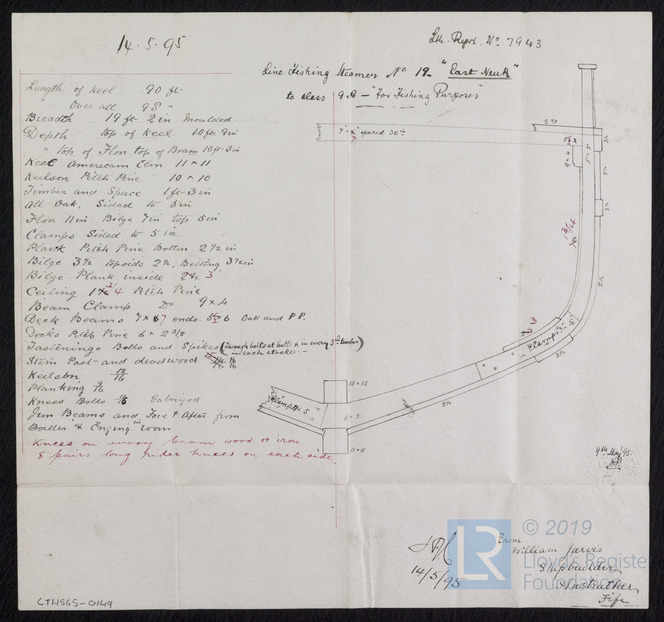 14.5.95
Lth. Report. No 7943
Line Fishing Steamer No 19 - "East Neuk"
to class 9.A - "For Fishing Purposes"
Length of Keel 90 ft
" Over all 98 "
Breadth 19 ft 2 in Moulded
Depth top of Keel 10 ft 9 in
" top of Floor top of Beam 10 ft 3 in
Keel American Elm 11 x 11
Keilson Pitch Pine 10 x 10
Timber and Space 1 ft 3 in
All Oak. Sided to 5 in
Floor 11 in Bilge 7 in top 5 in
Clamps Sided to 5 in
Plank Pitch Pine Bottom 2½ in
Bilge 3½ topside 2½, Belting 3½ in
Bilge Plank inside 2½ 3
Ceiling 1¾ Pitch Pine
Beam Clamp Do 9 x 4
Deck Beams 7 x 67 ends 6 Oak and P.P.
Decks Pitch Pine 6 x 2 3/8
Fastenings Bolts and Spikes (Through bolts at butts & in every 3rd timber
in each strake -
Stem Post and deadwood
Keelson
Planking
Knees Bolts Galvized
Iron Beams and Fore & Aft from
Boiler & Engine room
Knees on every beam wood or iron
8 pairs long rider knees on each side.
7" x spaced 30"
3/4
Clamp 5"
10 x 10
Clamp 5
11 x 11
9th May '95
14/5/95
From
William Jarvis
Shipbuilder
Anstruther
Fife
LTH565-0149
LR
© 2019
Lloyd's Register
Foundation